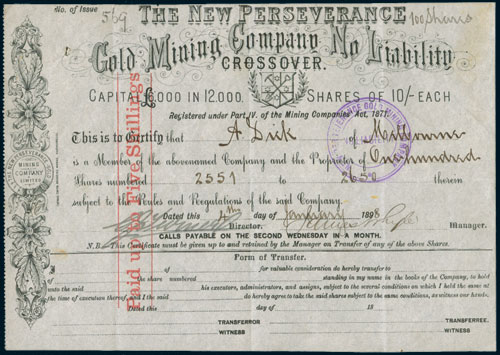 No. of Issue 569
100 Shares
THE NEW PERSEVERANCE
Gold Mining Company No Liability
CROSSOVER.
CAPITAL £6,000 IN 12,000 SHARES OF 10/- EACH
Registered under Part IV. of the Mining Companies' Act, 1871.
This is to Certify that A Dick of Melbourne
is a Member of the abovenamed Company and the Proprietor of One hundred
Shares numbered 2551 to 2650 therein
subject to the Rules and Regulations of the said Company.
Dated this 4th day of January 1898
Director. Manager.
CALLS PAYABLE ON THE SECOND WEDNESDAY IN A MONTH.
N.B. This Certificate must be given up to and retained by the Manager on Transfer of any of the above Shares.
Paid up to Five Shillings
MINING
COMPANY
LIMITED
Form of Transfer.
for valuable consideration do hereby transfer to
the share numbered standing in my name in the books of the Company, to hold
unto the said executors, administrators, and assigns, subject to the several conditions on which I held the same at
the time of execution thereof, and I the said do hereby agree to take the said shares subject to the same conditions, as witness our hands.
Dated this day of 18
TRANSFEROR TRANSFEREE.
WITNESS WITNESS